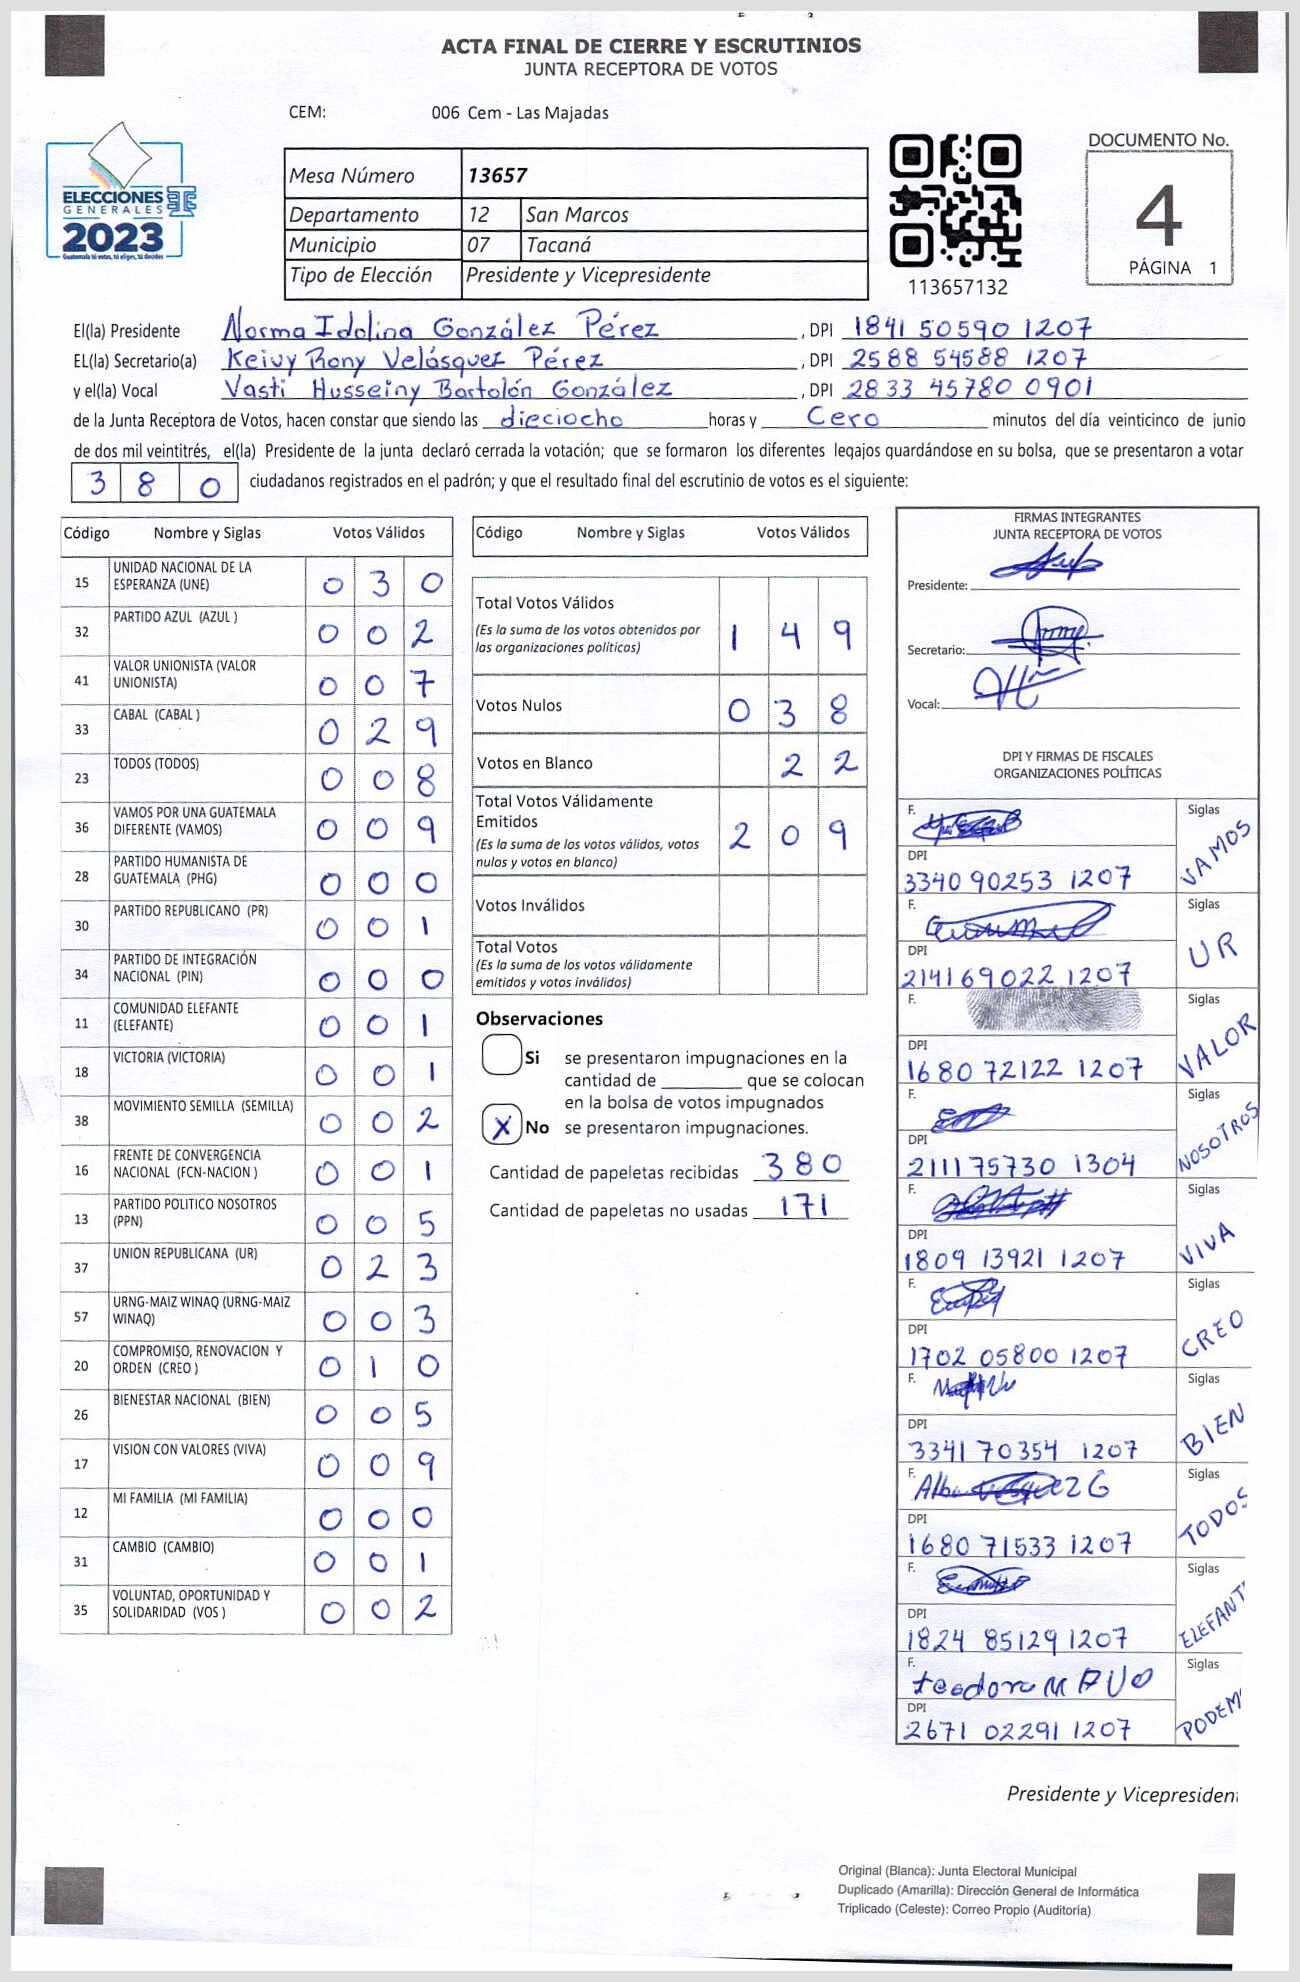 ACTA FINAL DE CIERRE Y ESCRUTINIOS
JUNTA RECEPTORA DE VOTOS
CEM: 006 Cem - Las Majadas
ELECCIONES
GENERALES
2023
Guatemala tú votas, tú eliges, tú decides
Mesa Número 13657
Departamento 12 San Marcos
Municipio 07 Tacaná
Tipo de Elección Presidente y Vicepresidente
113657132
DOCUMENTO No.
4
PÁGINA 1
El(la) Presidente Norma Idolina González Pérez, DPI 1841 50590 1207
EL(la) Secretario(a) Keivy Rony Velásquez Pérez, DPI 2588 54588 1207
y el(la) Vocal Vasti Husseiny Bartolón González, DPI 2833 45780 0901
de la Junta Receptora de Votos, hacen constar que siendo las dieciocho horas y Cero minutos del día veinticinco de junio
de dos mil veintitrés, el(la) Presidente de la junta declaró cerrada la votación; que se formaron los diferentes legajos guardándose en su bolsa, que se presentaron a votar
380 ciudadanos registrados en el padrón; y que el resultado final del escrutinio de votos es el siguiente:
Código Nombre y Siglas Votos Válidos
15 UNIDAD NACIONAL DE LA ESPERANZA (UNE) 030
32 PARTIDO AZUL (AZUL ) 002
41 VALOR UNIONISTA (VALOR UNIONISTA) 007
33 CABAL (CABAL ) 029
23 TODOS (TODOS) 008
36 VAMOS POR UNA GUATEMALA DIFERENTE (VAMOS) 009
28 PARTIDO HUMANISTA DE GUATEMALA (PHG) 000
30 PARTIDO REPUBLICANO (PR) 001
34 PARTIDO DE INTEGRACIÓN NACIONAL (PIN) 000
11 COMUNIDAD ELEFANTE (ELEFANTE) 001
18 VICTORIA (VICTORIA) 001
38 MOVIMIENTO SEMILLA (SEMILLA) 002
16 FRENTE DE CONVERGENCIA NACIONAL (FCN-NACION ) 001
13 PARTIDO POLITICO NOSOTROS (PPN) 005
37 UNION REPUBLICANA (UR) 023
57 URNG-MAIZ WINAQ (URNG-MAIZ WINAQ) 003
20 COMPROMISO, RENOVACION Y ORDEN (CREO ) 010
26 BIENESTAR NACIONAL (BIEN) 005
17 VISION CON VALORES (VIVA) 009
12 MI FAMILIA (MI FAMILIA) 000
31 CAMBIO (CAMBIO) 001
35 VOLUNTAD, OPORTUNIDAD Y SOLIDARIDAD (VOS ) 002
Código Nombre y Siglas Votos Válidos
Total Votos Válidos
(Es la suma de los votos obtenidos por las organizaciones políticas) 149
Votos Nulos 038
Votos en Blanco 22
Total Votos Válidamente Emitidos
(Es la suma de los votos válidos, votos nulos y votos en blanco) 209
Votos Inválidos
Total Votos
(Es la suma de los votos válidamente emitidos y votos inválidos)
Observaciones
Si se presentaron impugnaciones en la
cantidad de ________ que se colocan
en la bolsa de votos impugnados
X No se presentaron impugnaciones.
Cantidad de papeletas recibidas 380
Cantidad de papeletas no usadas 171
FIRMAS INTEGRANTES
JUNTA RECEPTORA DE VOTOS
Presidente:
Secretario:
Vocal:
DPI Y FIRMAS DE FISCALES
ORGANIZACIONES POLÍTICAS
F. Siglas VAMOS
DPI 3340 90253 1207
F. Siglas UR
DPI 2141 69022 1207
F. Siglas VALOR
DPI 1680 72122 1207
F. Siglas NOSOTROS
DPI 2111 75730 1304
F. Siglas VIVA
DPI 1809 13921 1207
F. Siglas CREO
DPI 1702 05800 1207
F. Siglas BIEN
DPI 3341 70354 1207
F. Siglas TODOS
DPI 1680 71533 1207
F. Siglas ELEFANT
DPI 1824 85129 1207
F. Siglas PODEM
DPI 2671 02291 1207
Presidente y Vicepresiden
Original (Blanca): Junta Electoral Municipal
Duplicado (Amarilla): Dirección General de Informática
Triplicado (Celeste): Correo Propio (Auditoría)